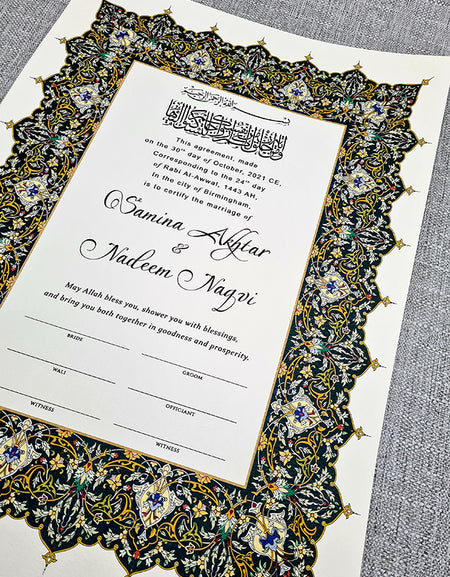 بسم الله الرحمن الرحيم
This agreement, made
on the 30th day of October, 2021 CE,
Corresponding to the 24th day
of Rabi Al-Awwal, 1443 AH,
In the city of Birmingham,
is to certify the marriage of
Samina Akhtar
&
Nadeem Naqvi
May Allah bless you, shower you with blessings,
and bring you both together in goodness and prosperity.
BRIDE
GROOM
WALI
OFFICIANT
WITNESS
WITNESS